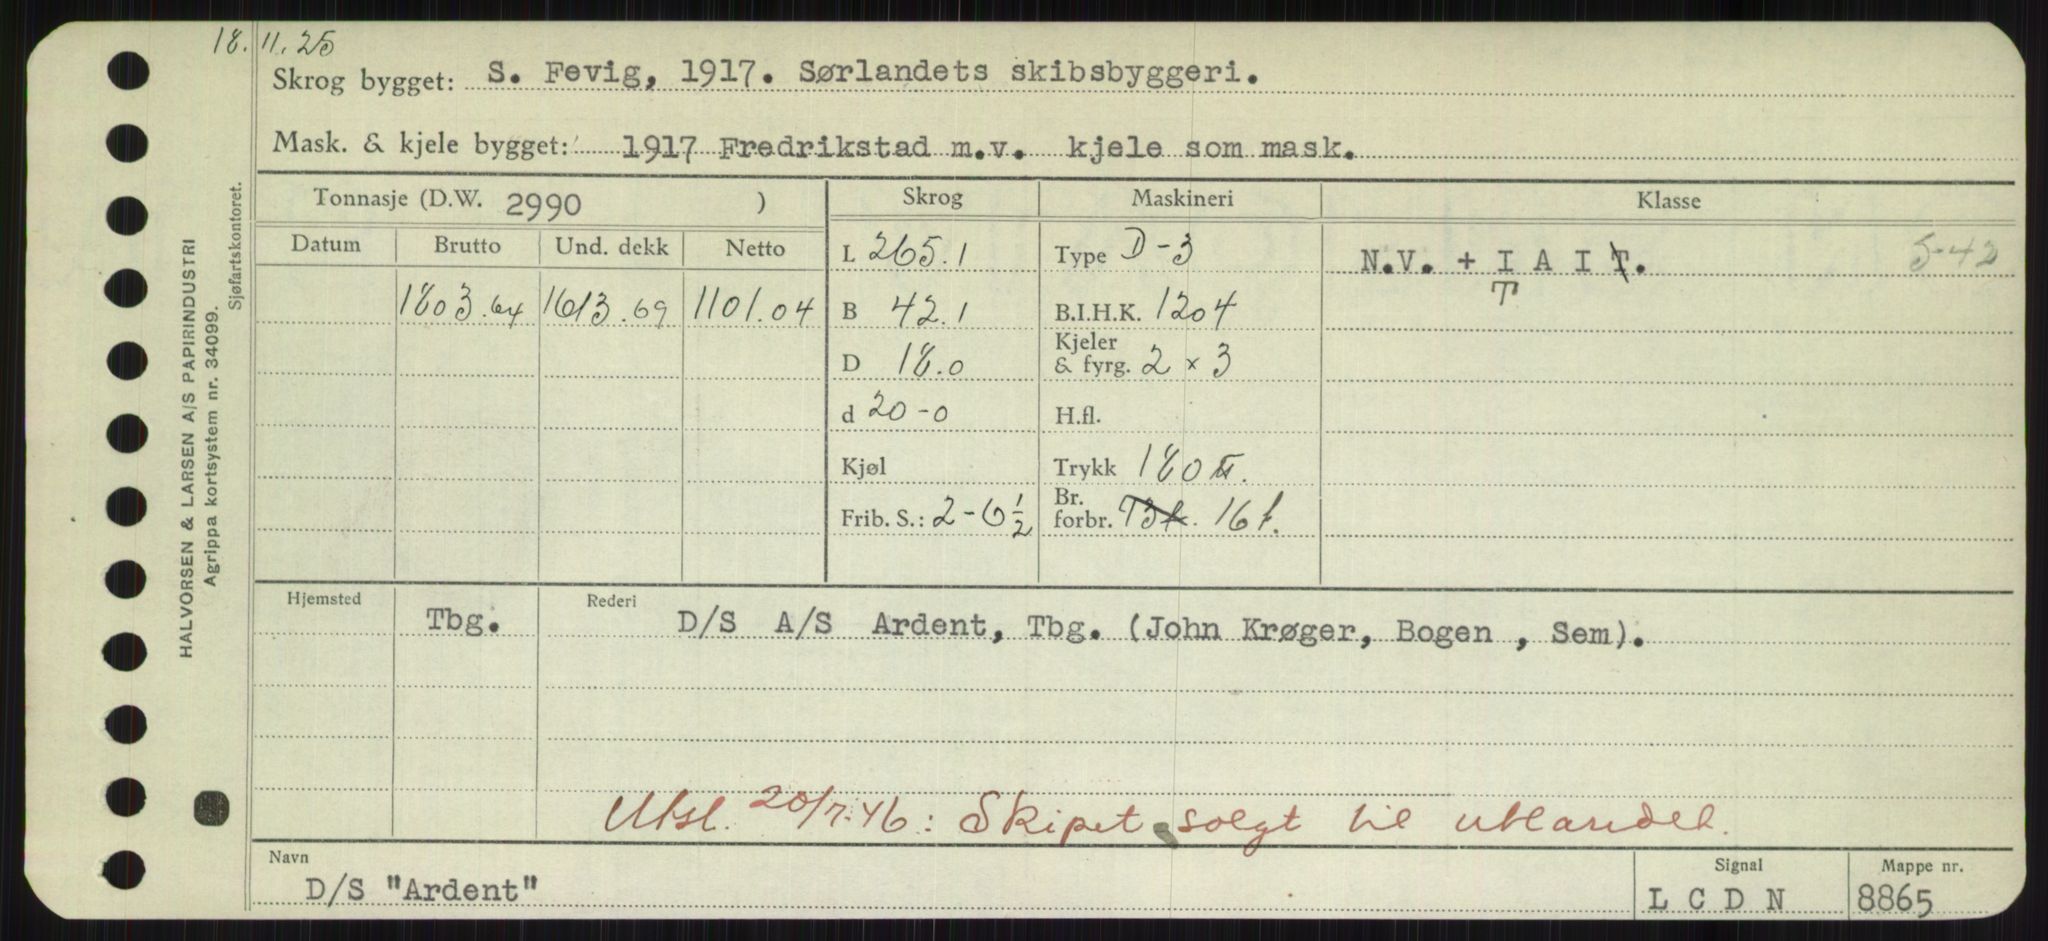 18. 11. 25
Skrog bygget: S. Fevig, 1917. Sørlandets skibsbyggeri.
Mask. & kjele bygget: 1917 Fredrikstad m.v. kjele som mask.
Tonnasje (D.W. 2990 ) Skrog Maskineri Klasse
Datum Brutto Und. dekk Netto
L 265.1 Type D-3 N.V. + I A I T. 5-42
T
1803.64 1613.69 1101.04 B 42.1 B.I.H.K. 1204
D 18.0 Kjeler & fyrg. 2 x 3
d 20-0 H.fl.
Kjøl Trykk 180
Frib. S.: 2-6 1/2 Br. forbr. 13t. 16 t.
Hjemsted Rederi
Tbg. D/S A/S Ardent, Tbg. (John Krøger, Bogen , Sem).
Utsl. 20/7.46: Skipet solgt til utlandet.
Navn Signal Mappe nr.
D/S "Ardent" L C D N 8865
HALVORSEN & LARSEN A/S PAPIRINDUSTRI
Agrippa kortsystem nr. 34099.
Sjøfartskontoret.